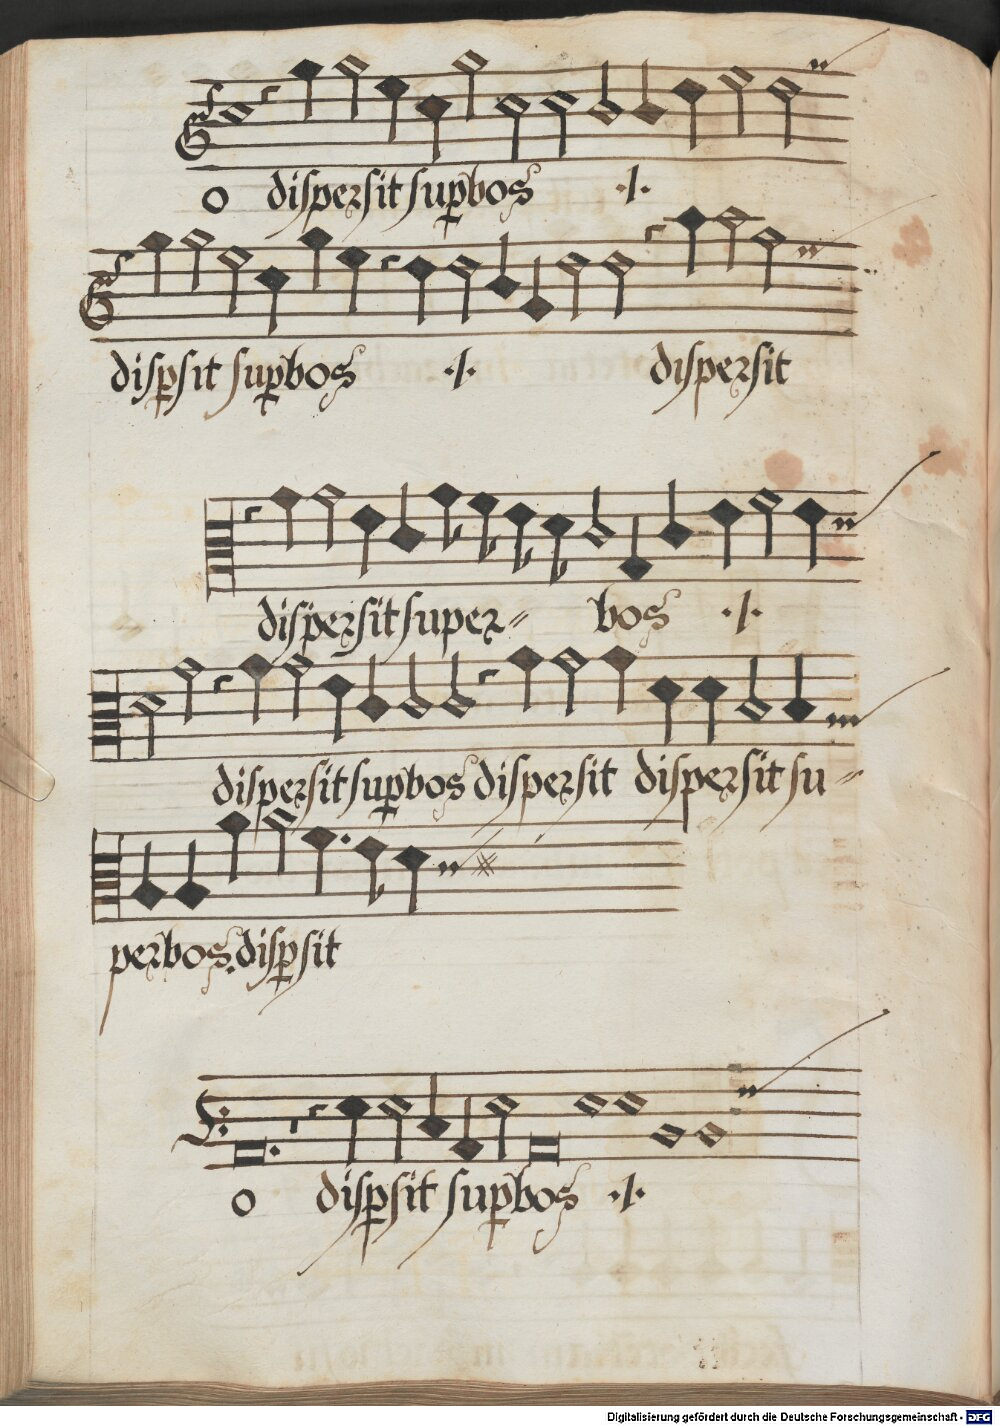 o dispersit sup̱bos ·/·
disp̱sit sup̱bos ·/· dispersit
dispersit super= bos ·/·
dispersit sup̱bos dispersit dispersit su=
perbos. disp̱sit
o disp̱sit sup̱bos ·/·
Digitalisierung gefördert durch die Deutsche Forschungsgemeinschaft - DFG